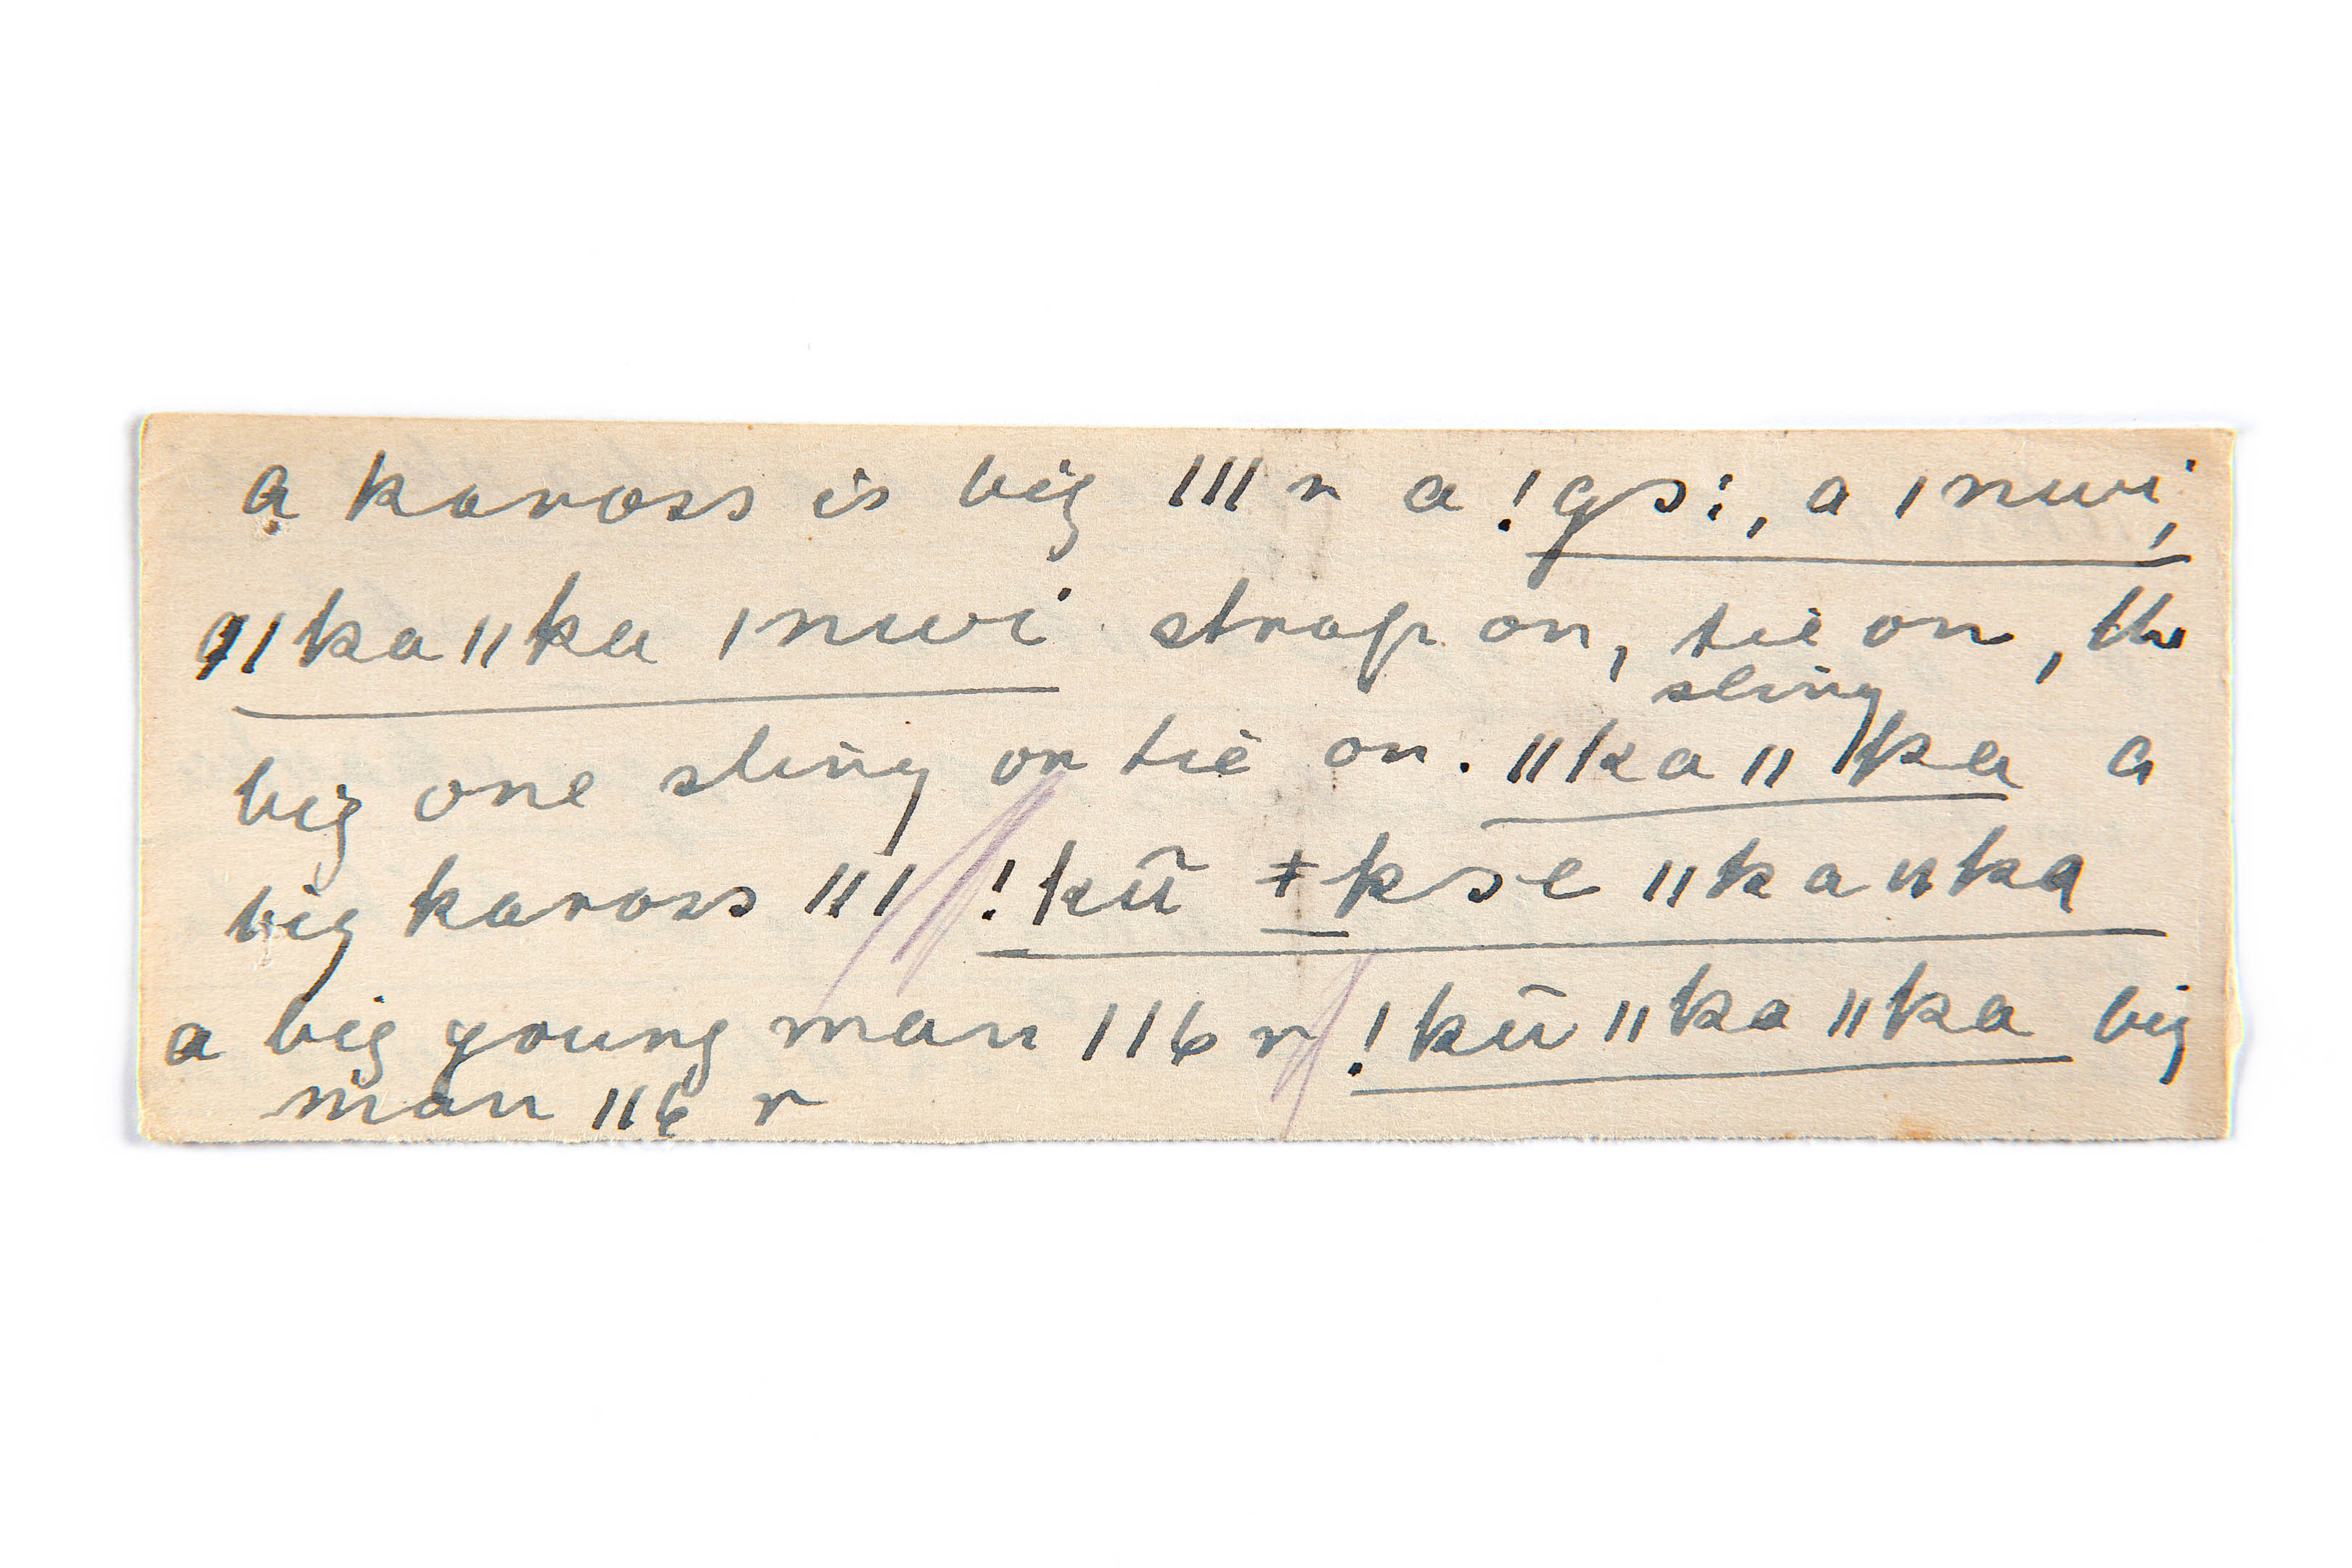 a kaross is big 111 r a !gɔ:, a ǀnwi,
ǁkaǁka ǀnwi strap on, tie on, the
sling
big one sling or tie on. ǁkaǁka a
big kaross 111 !kũ ǂkɔe ǁkaǁka
a big young man 116 r !kũ ǁkaǁka big
man 116 r